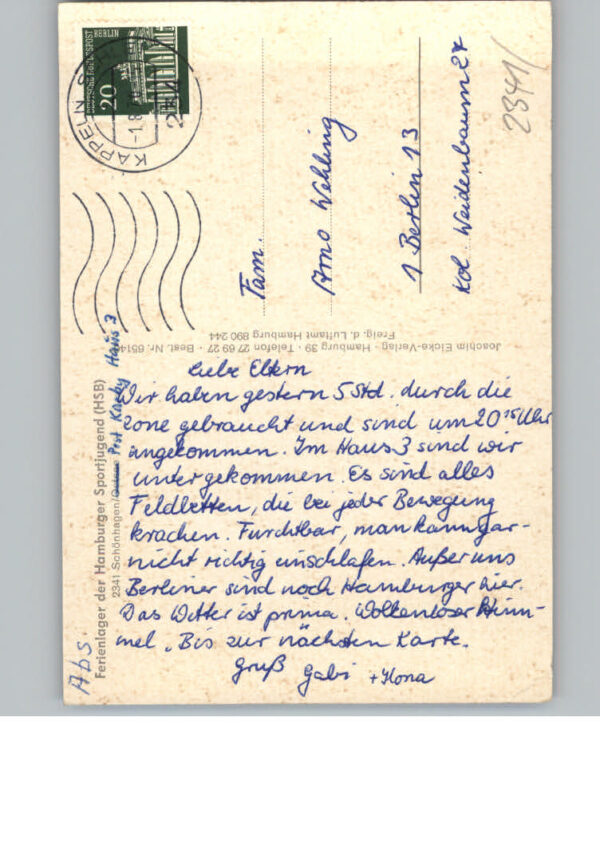 Liebe Eltern
Wir haben gestern 5 Std. durch die
Zone gebraucht und sind um 20 15 Uhr
angekommen. Im Haus 3 sind wir
untergekommen. Es sind alles
Feldbetten, die bei jeder Bewegung
krachen. Furchtbar, man kann gar-
nicht richtig einschlafen. Außer uns
Berliner sind noch Hamburger hier.
Das Wetter ist prima. Wolkenloser Him-
mel. Bis zur nächsten Karte.
Gruß Gabi + Ilona
Abs.
Ferienlager der Hamburger Sportjugend (HSB)
2341 Schönhagen/ Post Haus 3
Joachim Eicke-Verlag · Hamburg 39 · Telefon 27 69 27 · Best. Nr.
Freig. d. Luftamt Hamburg 890 244
Fam.
Arno Wehling
1 Berlin 13
Kol. Weidenbaum 27
2341/
DEUTSCHE BUNDESPOST
BERLIN
20
KAPPELN
-1.8.